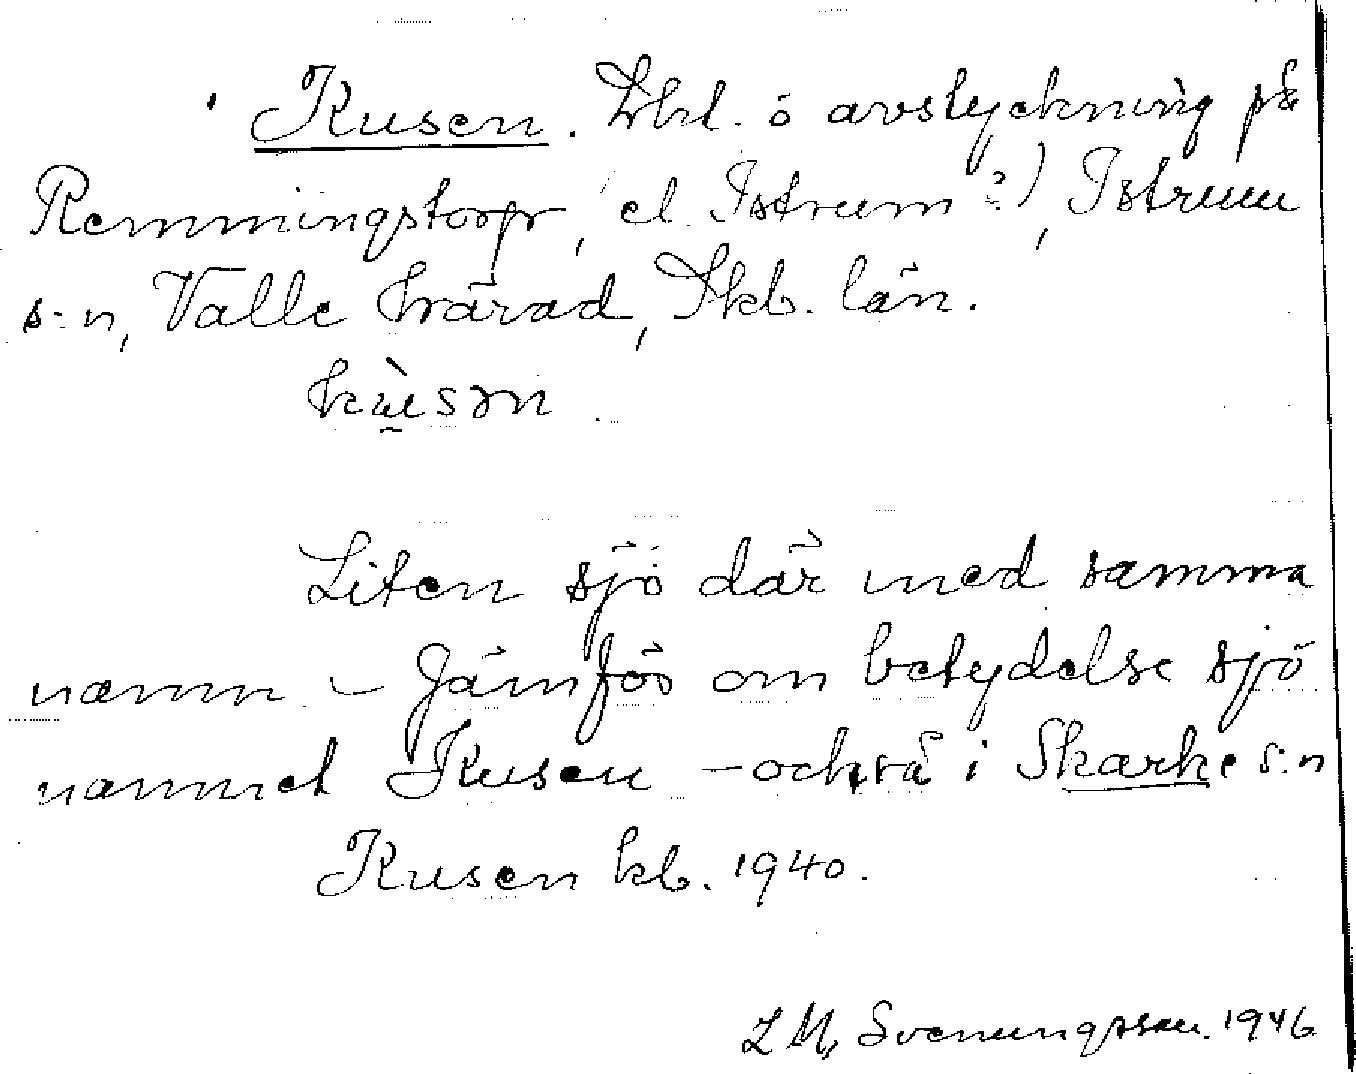 Kusen. Lht. o avstyckning på
Remmingstorp, el. Istrum?), Istrum
s:n, Valle härad, Skb. län.
kùsən
Liten sjö där med samma
namn – Jämför om betydelse sjö
namnet Kusen – också i Skarke s:n
Kusen kb. 1940.
L M, Svenungsson. 1946